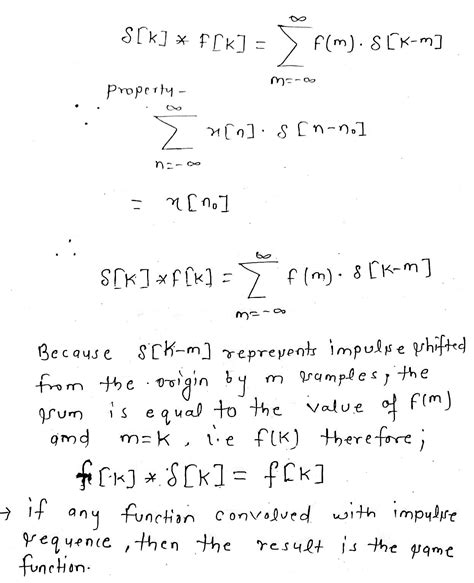 δ[k] * f[k] = ∞∑m=-∞ f(m). δ[k-m]
Property -
∴ ∞∑n=-∞ x[n]. δ[n-n₀]
= x[n₀]
∴
δ[k] * f[k] = ∞∑m=-∞ f(m). δ[k-m]
Because δ[k-m] represents impulse shifted
from the origin by m samples, the
sum is equal to the value of f(m)
and m=k, i.e f(k) therefore;
f[k] * δ[k] = f[k]
→ if any function convolved with impulse
sequence, then the result is the same
function.